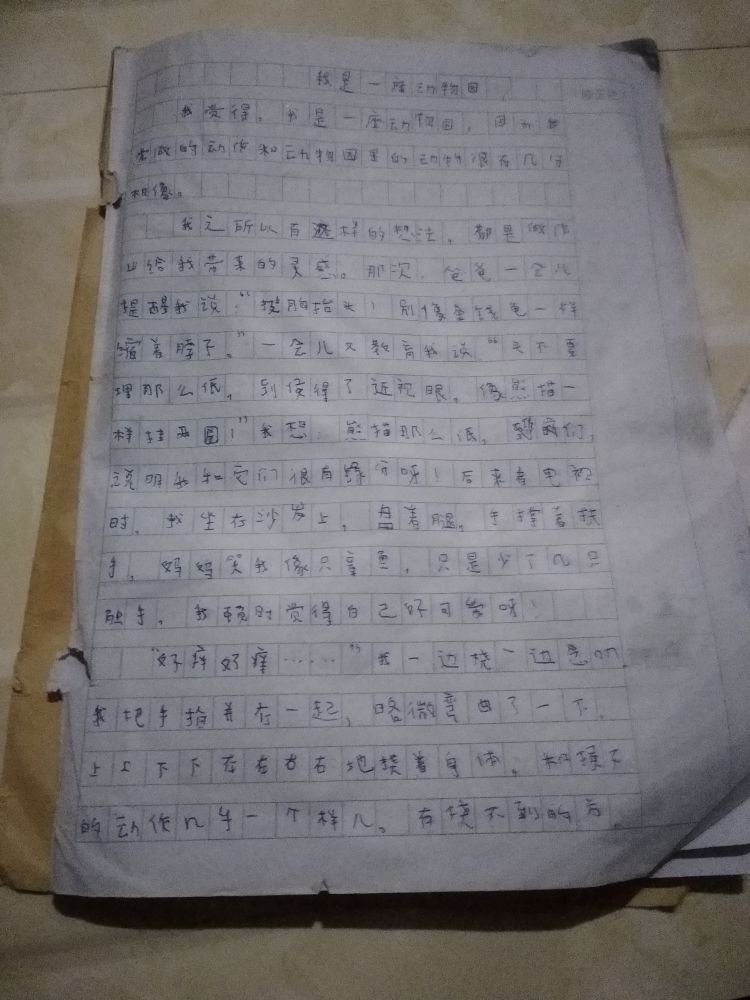 我是一座动物园
我觉得，我是一座动物园，因为我
常做的动作和动物园里的动物很有几分
相像。
我之所以有这样的想法，都是做作
业给我带来的灵感。那次，爸爸一会儿
提醒我说：“挺胸抬头！别像金钱龟一样
缩着脖子。”一会儿又教育我说：“头不要
埋那么低，别使得了近视眼，像熊猫一
样挂两圆！”我想：熊猫那么低，
说明我和它们很有缘分呀！后来看电视
时，我坐在沙发上，盘着腿，手撑着扶
手，妈妈笑我像只章鱼，只是少了几只
触手。我顿时觉得自己好可爱呀！
“好痒好痒……”我一边挠一边
我把手指并在一起，略微弯曲了一下，
上上下下左左右右地挠着身体，和猴子
的动作几乎一个样儿。有挠不到的方，